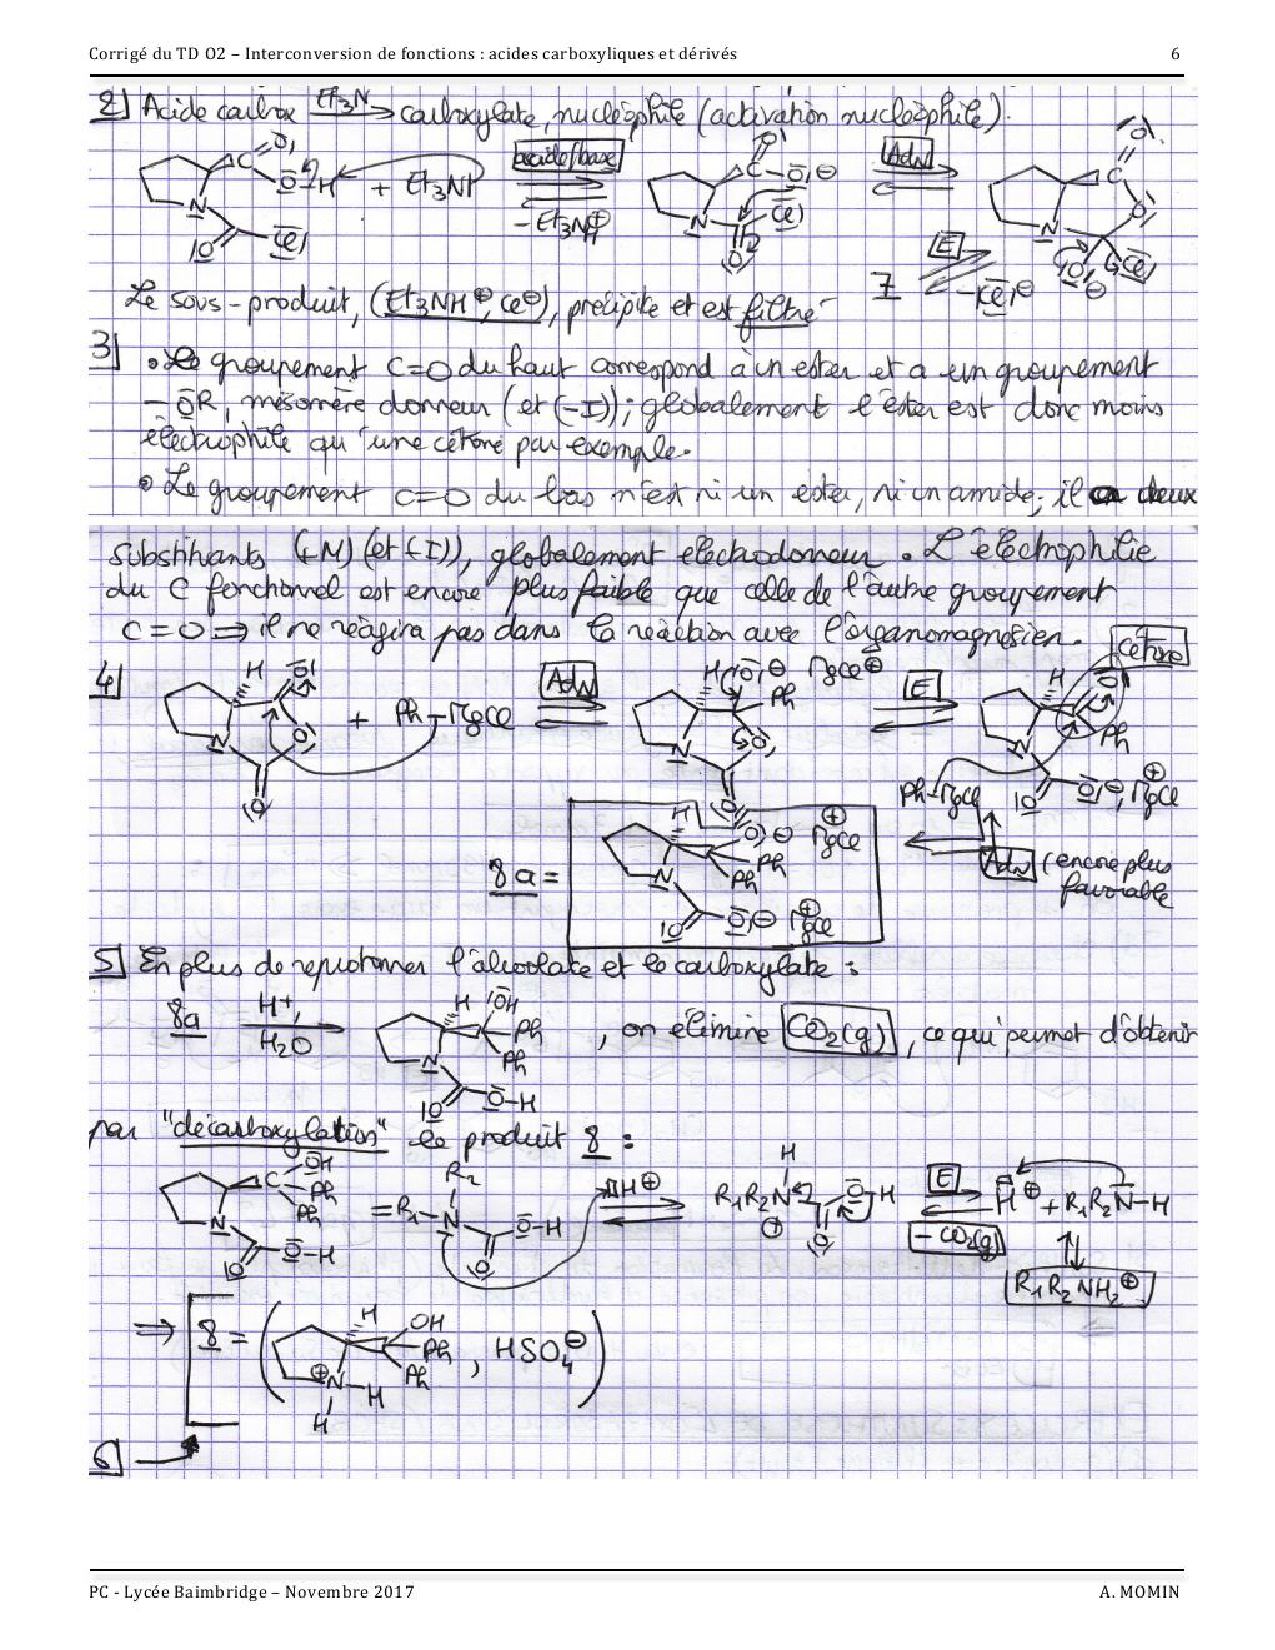 Corrigé du TD O2 – Interconversion de fonctions : acides carboxyliques et dérivés 6
2) Acide carbox Et3N → carboxylate, nucléophile (activation nucléophile).
acide/base
AdN
+ Et3N
- Et3NH⊕
E
7
- |Cl|⊖
Le sous-produit, (Et3NH⊕, Cl⊖), précipite et est filtré
3) • Le groupement C=O du haut correspond à un ester et a un groupement
- OR, mésomère donneur (et (-I)); globalement l'ester est donc moins
électrophile qu'une cétone par exemple.
• Le groupement C=O du bas n'est ni un ester, ni un amide; il a deux
substituants (+M) (et (-I)), globalement électrodonneur. L'électrophilie
du C fonctionnel est encore plus faible que celle de l'autre groupement
C=O ⇒ il ne réagira pas dans la réaction avec l'organomagnésien.
cétone
4)
+ Ph-MgCl
AdN
MgCl⊕
E
Ph-MgCl
8a =
AdN (encore plus
favorable
5) En plus de reprotonner l'alcoolate et le carboxylate :
8a H+, H2O
, on élimine CO2(g), ce qui permet d'obtenir
par "décarboxylation" le produit 8 :
E
- CO2(g)
H⊕ + R1R2N-H
R1R2NH2⊕
⇒ 8 = ( , HSO4⊖ )
6)
PC - Lycée Baimbridge – Novembre 2017 A. MOMIN